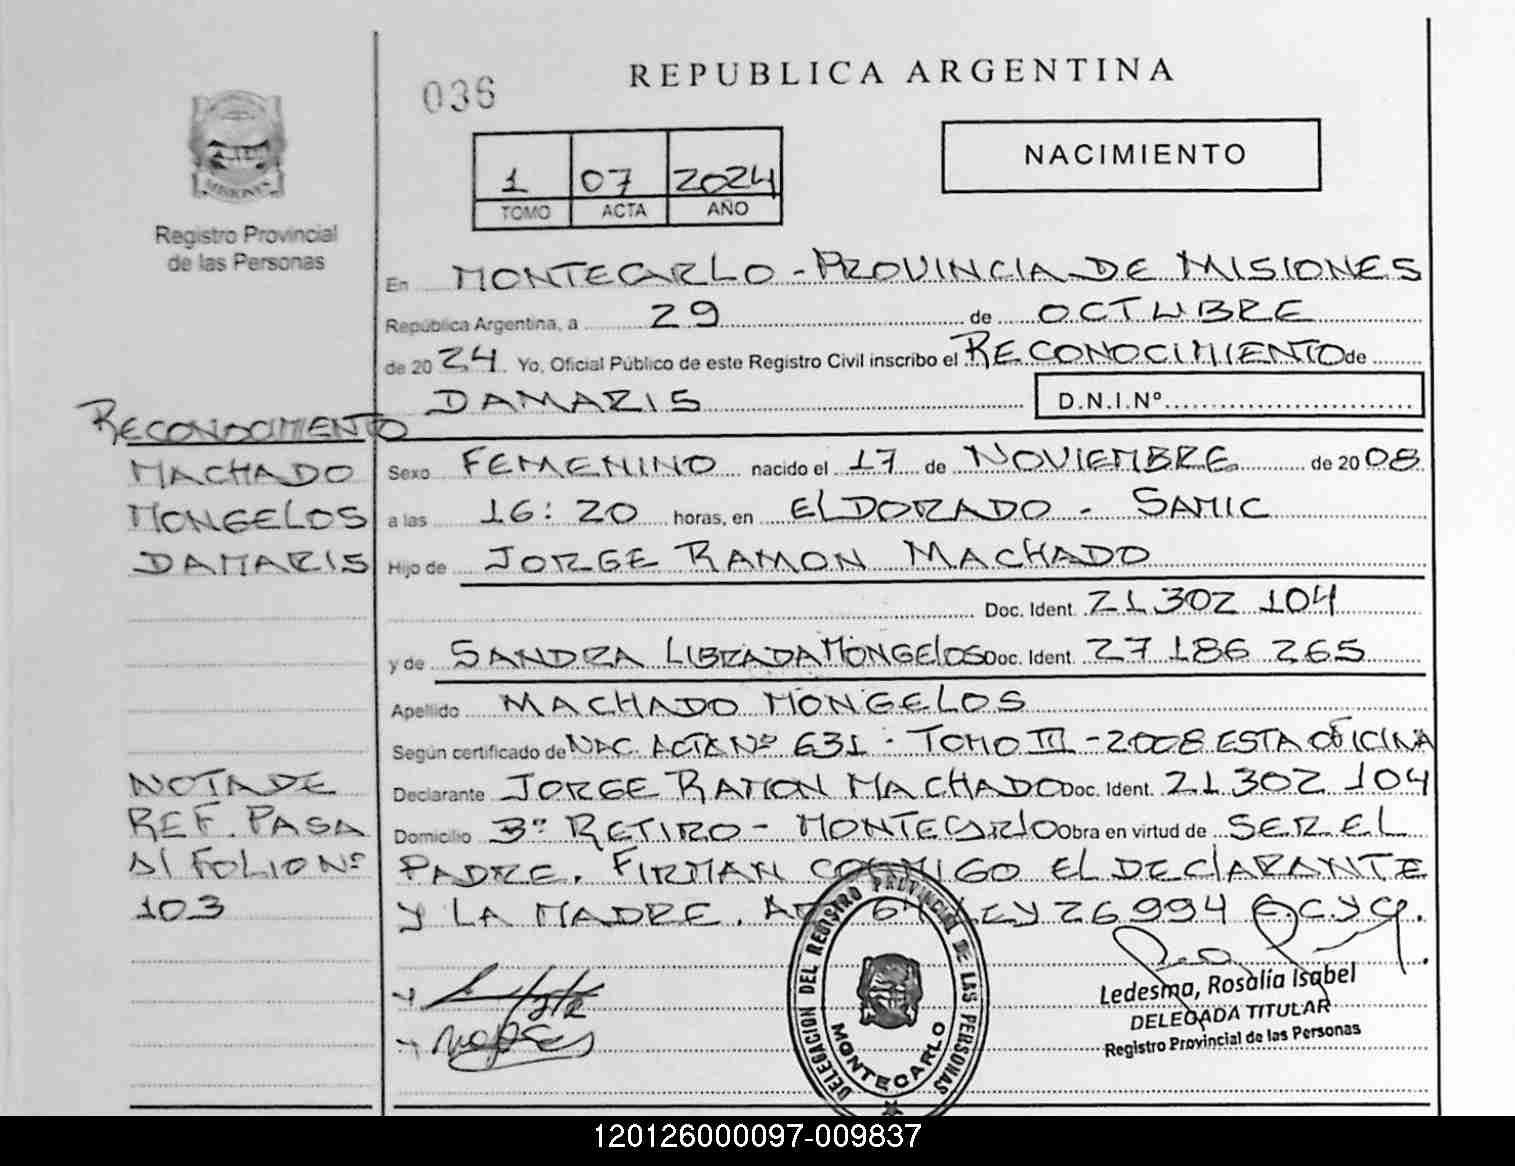 036
REPUBLICA ARGENTINA
NACIMIENTO
1 07 2024
TOMO ACTA AÑO
MISIONES
Registro Provincial
de las Personas
En MONTECARLO - PROVINCIA DE MISIONES
República Argentina, a 29 de OCTUBRE
de 2024. Yo, Oficial Público de este Registro Civil inscribo el RECONOCIMIENTO de
DAMARIS D.N.I.Nº
RECONOCIMIENTO
MACHADO
MONGELOS
DAMARIS
Sexo FEMENINO nacido el 17 de NOVIEMBRE de 2008
a las 16:20 horas, en ELDORADO - SAMIC
Hijo de JORGE RAMON MACHADO
Doc. Ident. 21.302 104
y de SANDRA LIBRADA MONGELOS Doc. Ident. 27 186 265
Apellido MACHADO MONGELOS
Según certificado de NAC. ACTA Nº 631 - TOMO III - 2008 ESTA OFICINA
Declarante JORGE RAMON MACHADO Doc. Ident. 21 302 104
Domicilio 3º RETIRO - MONTECARLO Obra en virtud de SER EL
PADRE. FIRMAN CONMIGO EL DECLARANTE
Y LA MADRE. 64 LEY 26994
NOTA DE
REF. PASA
AL FOLIO Nº
103
DELEGACION DEL REGISTRO PROVINCIAL DE LAS PERSONAS
MONTECARLO
Ledesma, Rosalía Isabel
DELEGADA TITULAR
Registro Provincial de las Personas
120126000097-009837